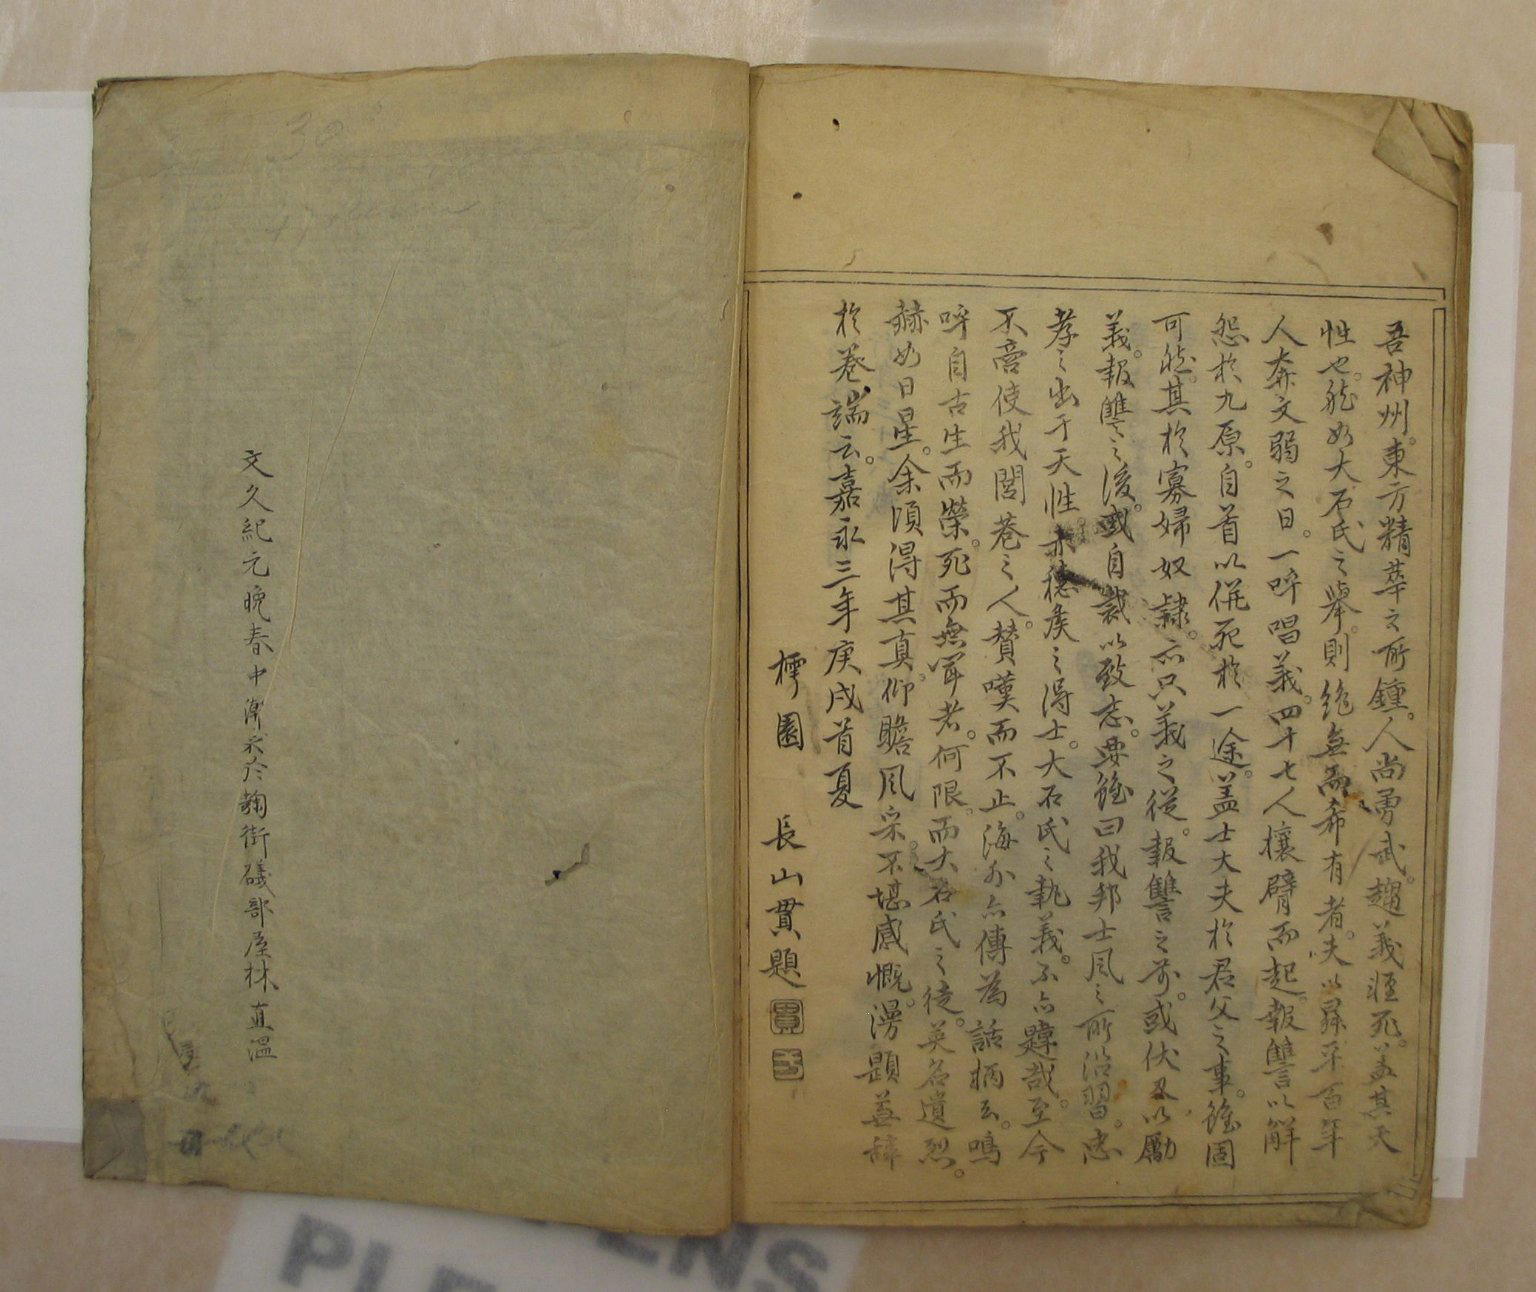 吾神州。東方精萃之所鍾。人尚勇武。趨義輕死。蓋其天
性也。然如大石氏之擧。則絶無而希有者。夫以昇平百年
人奔文弱之日。一呼唱義。四十七人攘臂而起。報讐以解
怨於九原。自首以併死於一途。蓋士大夫於君父之事。雖固
可然。其於寡婦奴隷。亦只義之從。報讐之前。或伏刃以勵
義。報讐之後。或自裁以致志。要雖曰我邦士風之所沿習。忠
孝之出于天性。亦穂矦之得士。大石氏之執義。不亦韙哉。至今
不啻使我閭巷之人。賛嘆而不止。海外亦傳為話柄云。嗚
呼自古生而榮。死而無聞者。何限。而大石氏之徒。英名遺烈。
赫如日星。余頃得其真。仰瞻風采。不堪感慨。漫題蕪辞
於巻端云。嘉永三年庚戌首夏
樗園 長山貫題
貫
文久紀元晩春中澣求於麹街磯部屋林直温
30